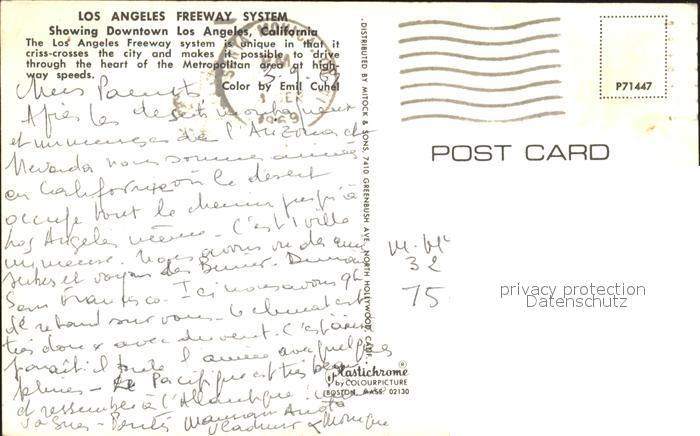 LOS ANGELES FREEWAY SYSTEM
Showing Downtown Los Angeles, California
The Los Angeles Freeway system is unique in that it
criss-crosses the city and makes it possible to drive
through the heart of the Metropolitan area at high-
way speeds.
Color by Emil Cuhel
Chers Parents
Après les deserts montagneux
et immenses de l'Arizona et
Nevada nous sommes arrivés
en Californie où le desert
occupe tout le chemin jusqu'à
Los Angeles même. C'est 1 ville
immense. Nous avons vu des
et voyons des Demain
San Francisco. Ici nous avons 9h
de retard sur vous. Le climat est
très doux avec du vent. C'est
paraît il toute l'année avec quelques
pluies - Le Pacifique est très beau
et ressemble à l'Atlantique
vagues
Vladimir & Monique
DISTRIBUTED BY MITOCK & SONS, 7410 GREENBUSH AVE., NORTH HOLLYWOOD, CALIF.
Plastichrome ®
by COLOURPICTURE
BOSTON, MASS. 02130
P71447
POST CARD
32
75
privacy protection
Datenschutz